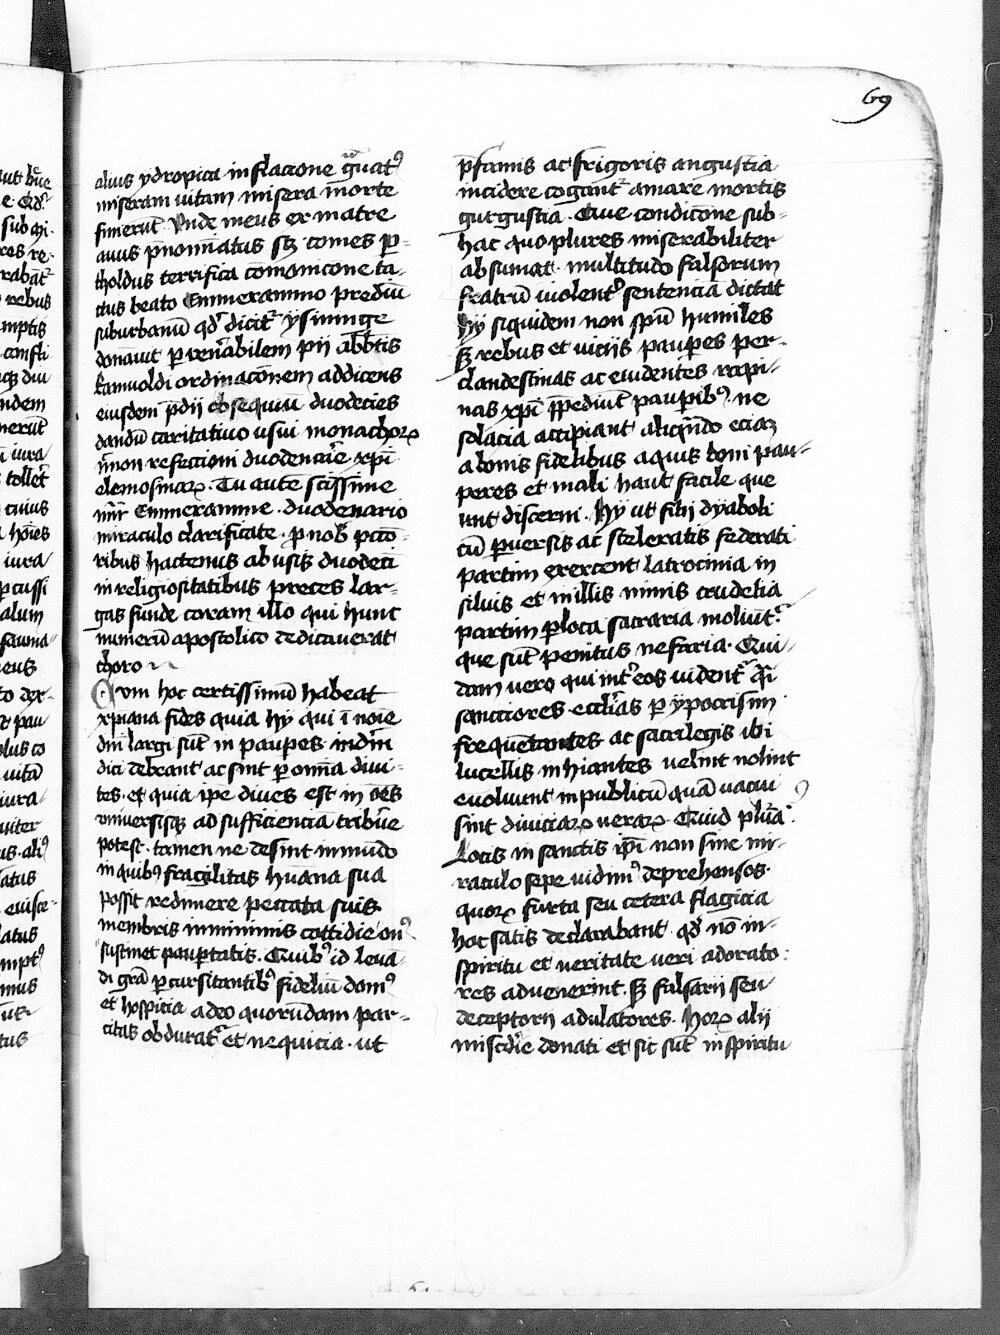 69
alius ydropica inflacione gͣuatꝰ
miseram uitam misera morte
finierūt Vnde meus ex matre
auus p̄nomīatus scꝫ comes ꝑ-
tholdus terrifica cōmonicione ta-
ctus beato Emmerammo prediū
suburbanū qd' dicit᷑ ysininge
donauit ꝑ ven̄abilem pii abb̄tis
Ramuoldi ordinacōnem addicens
eiusdem p̄dii obsequiū duodecies
dandū caritatiuo usui monachoꝝ
refectioni xp̄i
elemosinaꝝ. Tu aute scissime
Emmeramme. duodenario
miraculo clarificate. ꝓ nob̄ pctō-
ribus hactenus abusis duodeci
in religiositatibus preces lar-
gas funde coram illo qui hunc
numerū apostolico dedicauerat
choro
Cum hoc certissimū habeat
xp̄iana fides quia hy qui ī noīe
dn̄i largi sūt in paupes indīn
dici debeant ac sint ꝑ omīa diui-
tes. et quia ip̄e diues est in oēs
uniuersisqꝫ ad sufficienciā tribūe
potest. tamen ne desint in mūdo
in quibꝰ fragilitas hūana sua
possit redimere peccata suis
membris inminimis cottidie onꝰ
sustinet pauꝑtatis. Quibꝰ id leua-
di grā ꝑcursitantibꝰ fideliū domꝰ
et hospicia adeo quorūdam par-
citas obdurat᷑ et nequicia. ut
p̄ famis ac frigoris angustia
incidere cogant᷑ amare mortis
gurgustia. Que condicōne sub-
hac quo plures miserabiliter
absumat. multitudo falsorum
fratrū uiolent᷑ sentenciā dictat
Hy siquidem non spū humiles
sꝫ rebus et uiciis paupes per
clandestinas ac euidentes rapi-
nas xp̄i īpediūt pauꝑibꝰ ne
solacia accipiant aliqn̄do eciaꝫ
a bonis fidelibus a quis boni pau-
peres et mali haut facile que
unt discerni. Hy ut filii dyaboli
cū ꝑuersis ac sceleratis federati
partim exercent latrocinia in
siluis et uillis nimis crudelia
partim ꝑ loca sacraria moliūt᷑
que sūt penitus nefaria. Qui-
dam vero qui int᷑ eos uident᷑ q̄si
sanctiores ecclīas ꝑ ypocrisim
frequētantes ac sacrilegis ibi
lucellis inhiantes uelint nolint
euoluunt in publicū quā uacui
sint diuiciaꝝ ueraꝝ. Quid plūa.
Locis in sanctis non sine mi-
raculo sepe uidimꝰ deprehensos.
quoꝝ furta seu cetera flagicia
hoc satis declarabant qd' nō in-
spiritu et ueritate ueri adorato-
res aduenerint. sꝫ falsarii seu
deceptorii adulatores. Hoꝝ alii
miscd'ie donati et sic sūt in spiritu